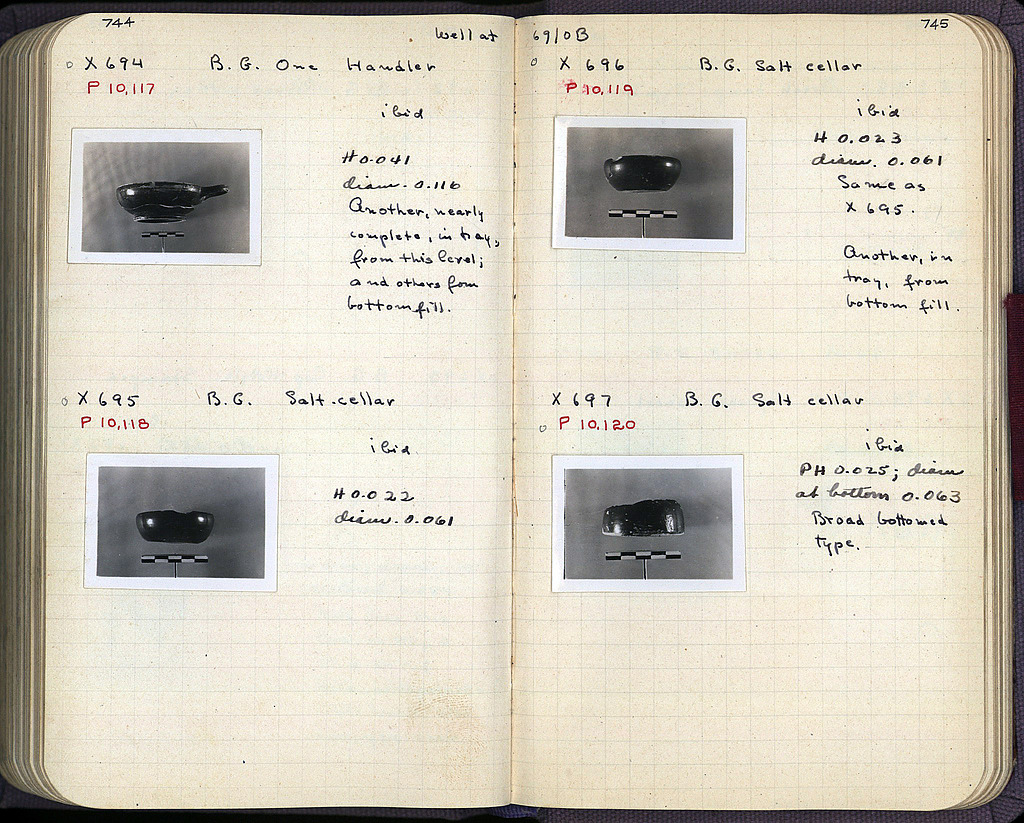 744
Well at
X 694 B.G. One Handler
P 10,117
ibid
H 0.041
diam. 0.116
Another, nearly
complete, in tray,
from this level;
and others from
bottom fill.
X 695 B.G. Salt-cellar
P 10,118
ibid.
H 0.022
diam. 0.061
745
69/0B
X 696 B.G. Salt cellar
P 10,119
ibid
H 0.023
diam. 0.061
Same as
X 695.
Another, in
tray, from
bottom fill.
X 697 B.G. Salt cellar
P 10,120
ibid
PH 0.025; diam
at bottom 0.063
Broad bottomed
type.